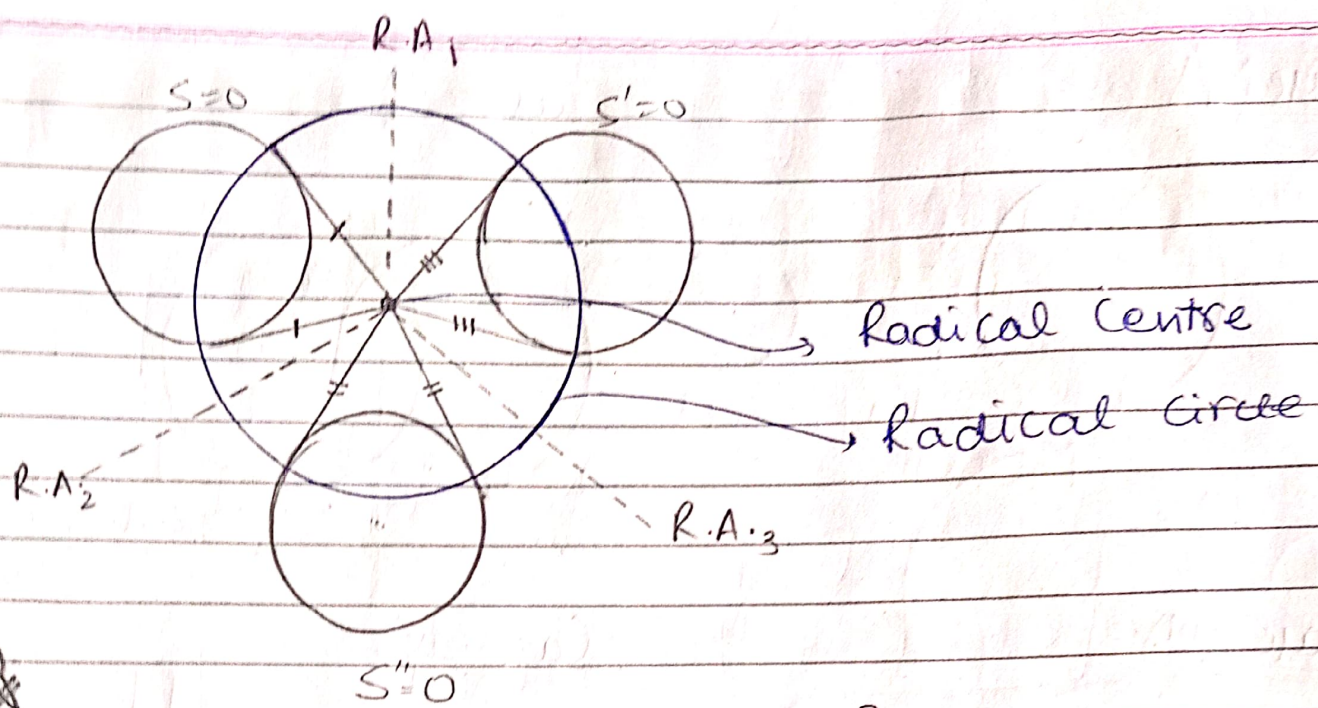 R.A₁
S=0
S'=0
Radical Centre
Radical Circle
R.A₂
R.A.₃
S''=0